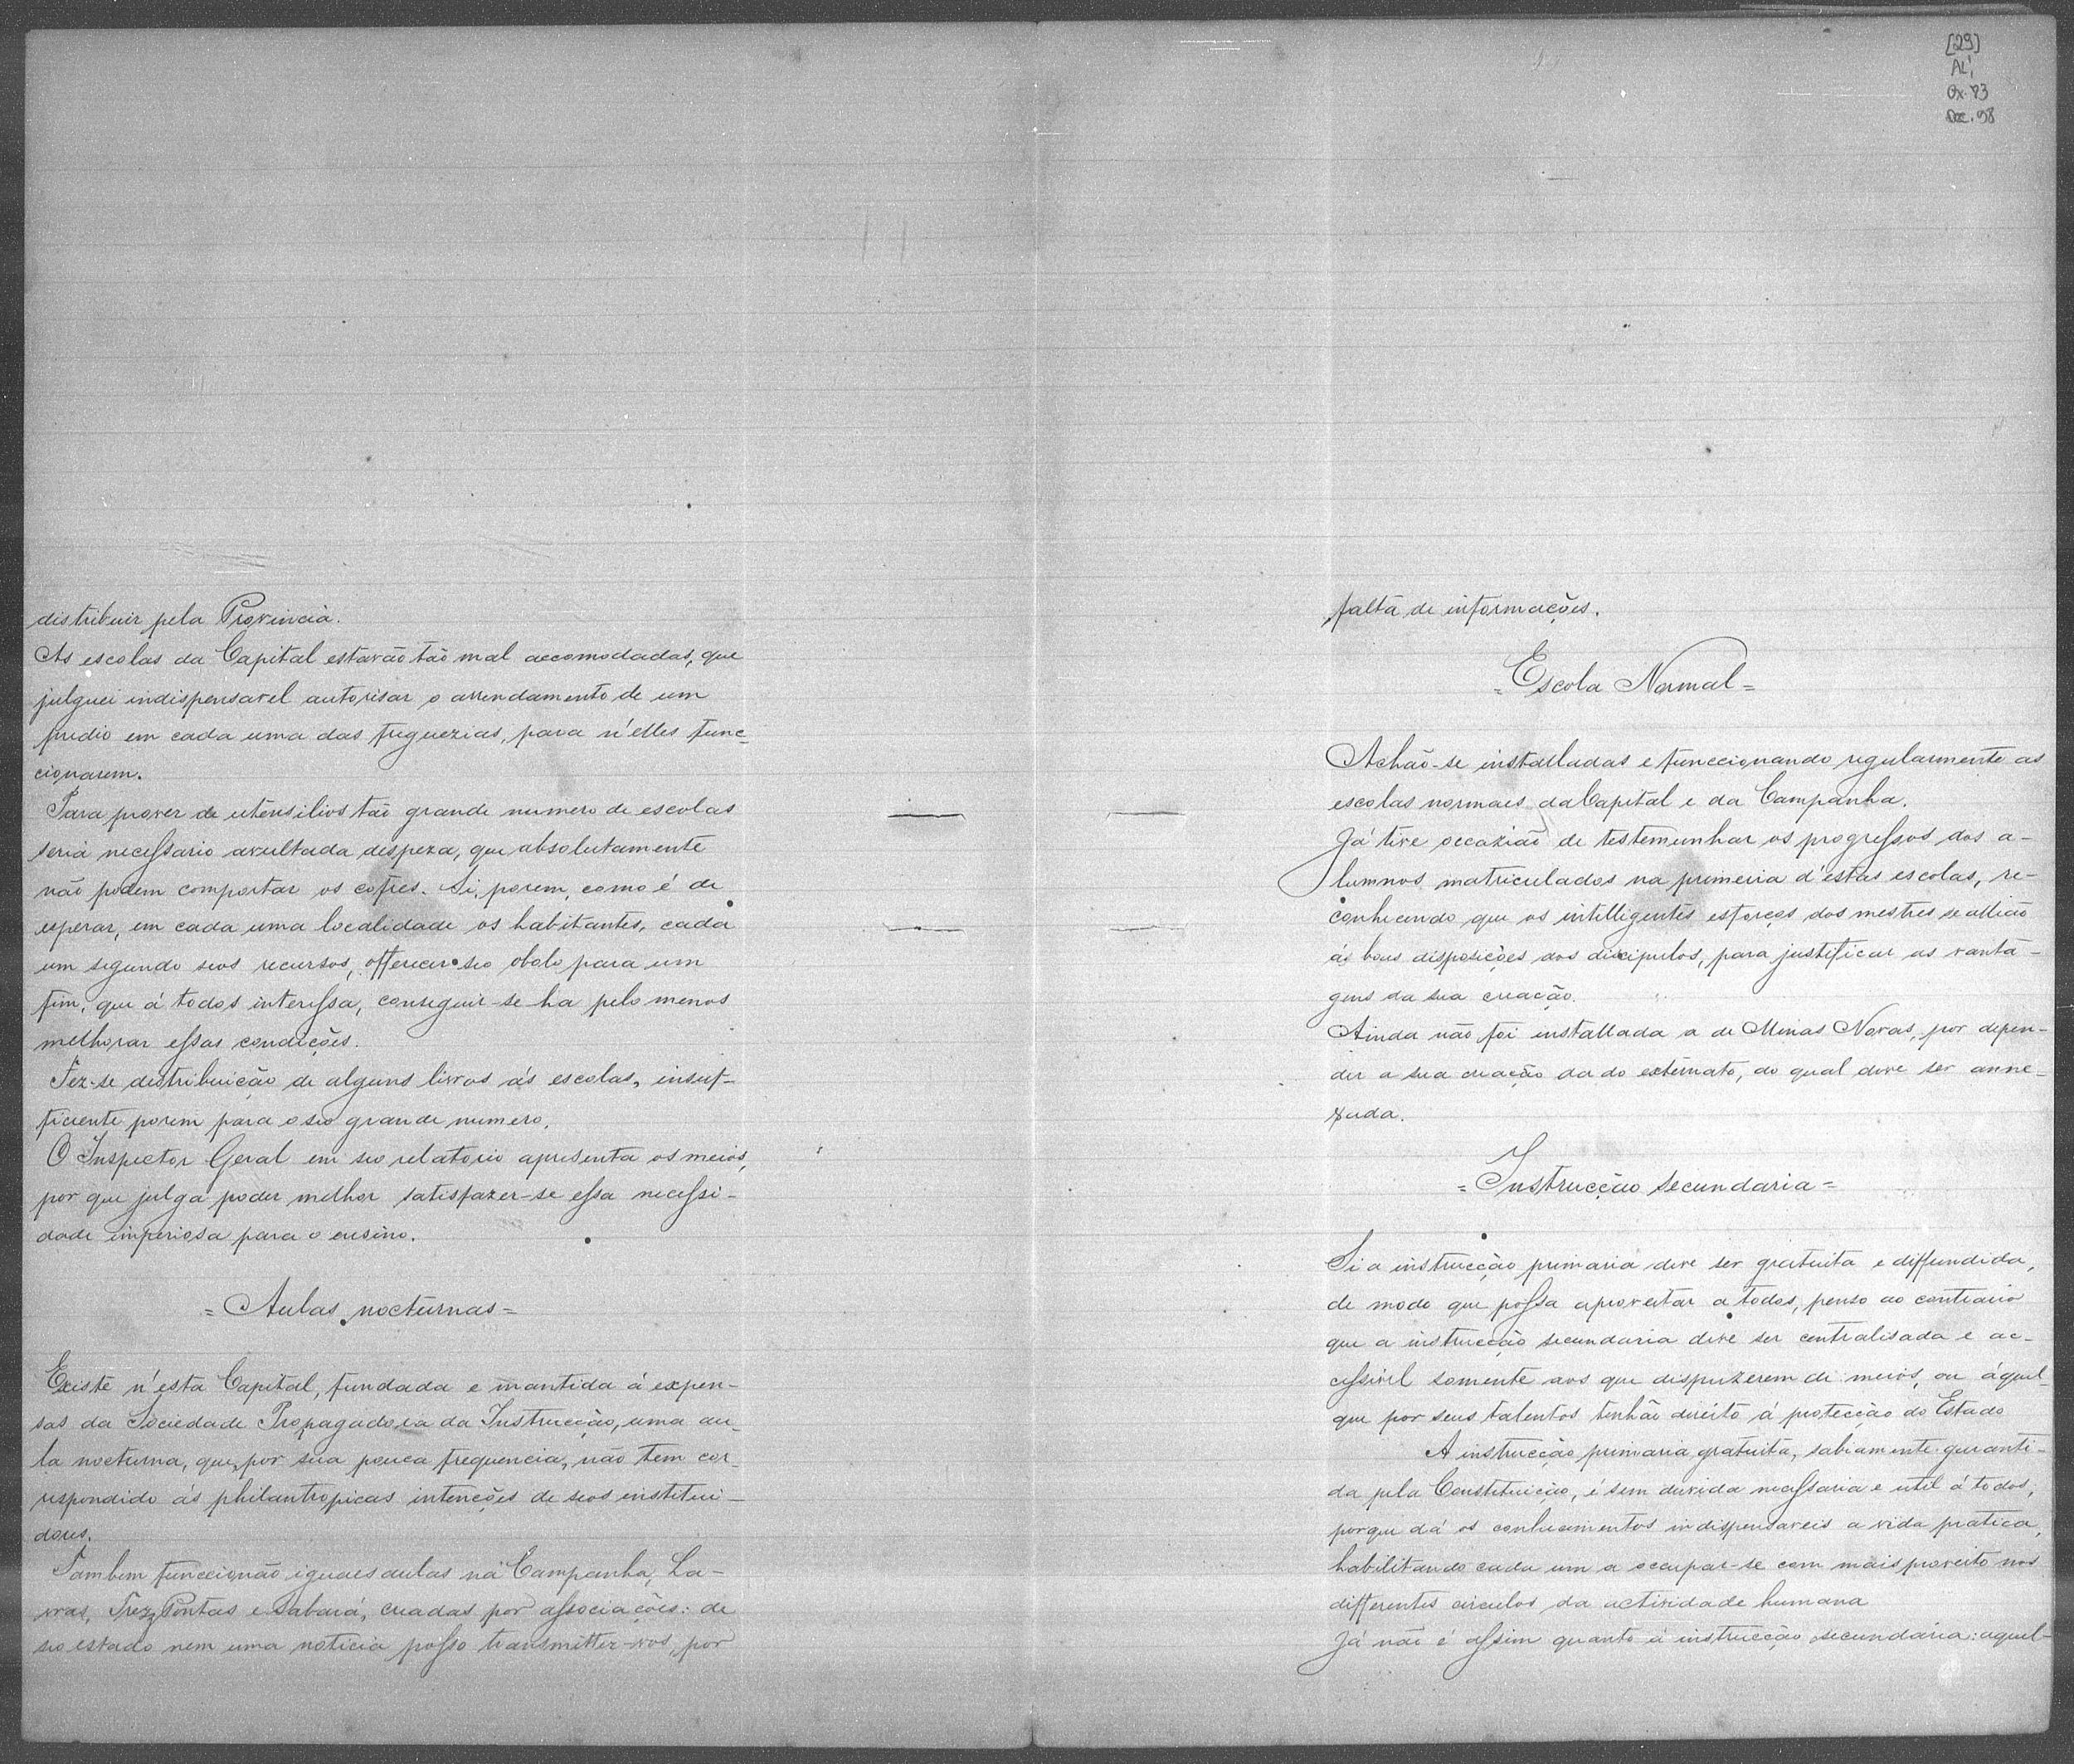 distribuir pela Provincia.
As escolas da Capital estavão tão mal accomodadas, que
julguei indispensavel autorisar o arrendamento de um
predio em cada uma das freguezias, para n'elles func-
cionarem.
Para prover de utensilios tão grande numero de escolas
seria necessario avultada despeza, que absolutamente
não podem comportar os cofres. Si, porem, como é de
esperar, em cada uma localidade os habitantes, cada
um segundo seos recursos, offerecer seo obolo para um
fim, que á todos interessa, conseguir-se ha pelo menos
melhorar essas condições.
Fez-se destribuição de alguns livros ás escolas, insuf-
ficiente porem para o seo grande numero.
O Inspector Geral em seo relatorio apresenta os meios,
por que julga poder melhor satisfazer-se essa necessi-
dade imperiosa para o ensino.
= Aulas nocturnas =
Existe n'esta Capital, fundada e mantida á expen-
sas da Sociedade Propagadora da Instrucção, uma au-
la nocturna, que, por sua pouca frequencia, não tem cor-
respondido ás philantropicas intenções de seos institui-
dores.
Tambem funccionão iguaes aulas na Campanha, La-
vras, Trez Pontas e Sabará, creadas por associações: de
seo estado nem uma noticia posso transmitter-vos, por
[29]
AL1
Cx. 73
Doc. 98
falta de informações.
= Escola Normal =
Achão-se installadas e funccionando regularmente as
escolas normaes da Capital e da Campanha.
Já tive occazião de testemunhar os progressos dos a-
lumnos matriculados na primeria d'estas escolas, re-
conhecendo que os intelligentes esforços dos mestres se allião
ás boas disposições dos discipulos, para justificar as vanta-
gens da sua creação.
Ainda não foi installada a de Minas Novas, por depen-
der a sua creação da do externato, ao qual deve ser anne-
xada.
= Instrucção secundaria =
Si a instrucção primaria deve ser gratuita e diffundida,
de modo que possa aproveitar a todos, penso ao contrario
que a instrucção secundaria deve ser centralisada e ac-
cessivel somente aos que dispuzerem de meios, ou áquel-
que por seus talentos tenhão direito á protecção do Estado
A instrucção primaria gratuita, sabiamente garanti-
da pela Constituição, é sem duvida necessaria e util á todos,
porque dá os conhecimentos indispensaveis a vida pratica,
habilitando cada um a occupar-se com mais proveito nos
differentes circulos da actividade humana
Já não é assim quanto á instrucção secundaria: aquel-